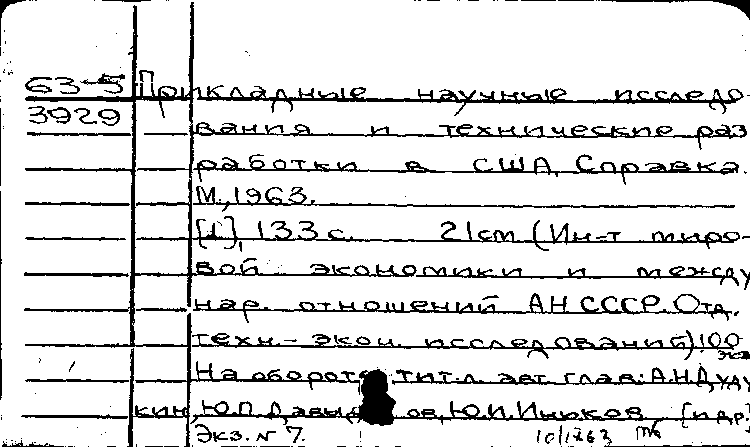 63-5 Прикладные научные исследо-
3929 вания и технические раз
работки в США. Справка.
М., 1963.
[1], 133 с. 21 см (Ин-т миро-
вой экономики и между
нар. отношений АН СССР. Отд.
техн.-экон. исследований) 100 экз
На обороте тит.л. авт. глав: А.Н.Дуду
кин, Ю.П. Давыдов, Ю.И. [и др.]
Экз. № 7. 10/1263